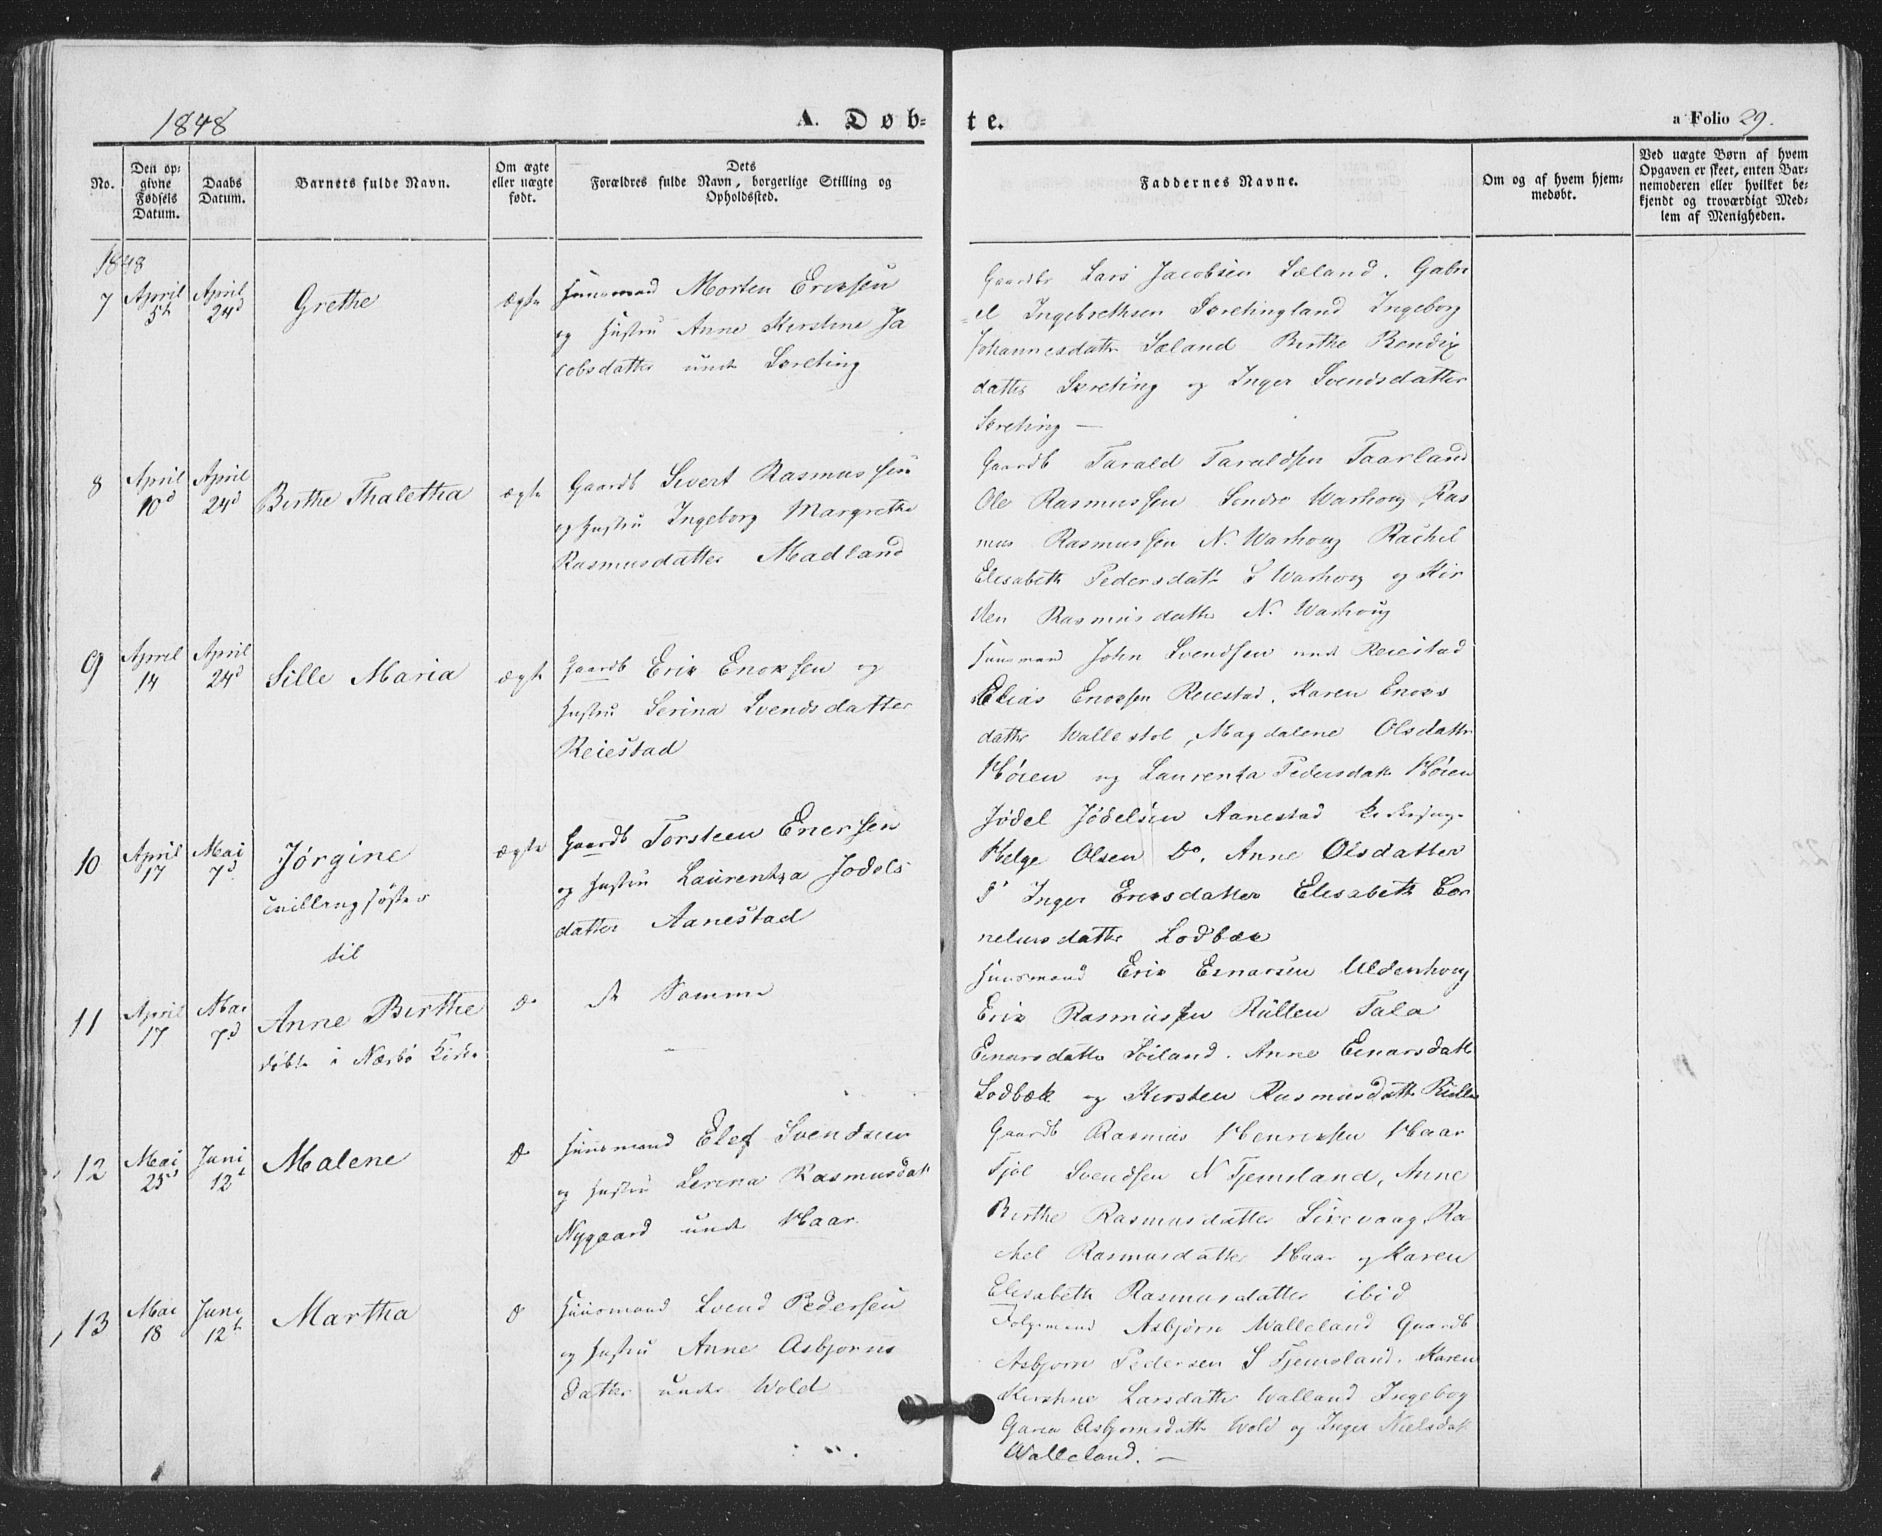 1848
A. Døb-
te.
a Folio 29.
No.
Den op-
givne
Fødsels
Datum.
Daabs
Datum.
Barnets fulde Navn.
Om ægte
eller uægte
født.
Dets
Forældres fulde Navn, borgerlige Stilling og
Opholdssted.
Faddernes Navne.
Om og af hvem hjem-
medøbt.
Ved uægte Børn af hvem
Opgaven er skeet, enten Bar-
nemoderen eller hvilket be-
kjendt og troværdigt Med-
lem af Menigheden.
1848
7
April
5t
April
24d
Grethe
ægte
Huusmand Morten Ericksen
og Hustru Anne Kirstine Ja
cobsdatter under Søreting
Gaardbr Lars Jacobsen Sæland. Gabri
el Ingebrethsen Søretingland Ingeborg
Johannesdattr Sæland Berthe Bendix
datter Søreting og Inger Svendsdatter
Søreting —
8
April
10d
April
24d
Berthe Thaletha
ægte
Gaardb Sivert Rasmussen
og Hustru Ingeborg Margrethe
Rasmusdatter Madland
Gaardb Tarald Taraldsen Taarland
Ole Rasmussen Søndre Warhoug, Ras
mus Rasmussen N. Warhoug Rachel
Elisabeth Pedersdatr S Warhoug og Kir
sten Rasmusdatter N. Warhoug
9
April
14
April
24d
Sille Maria
ægte
Gaardb Erik Enoksen og
Hustru Serina Svendsdatter
Reiestad
Huusmand John Svendsen undr Reiestad
Elias Enoksen Reiestad. Karen Enoks
datter Wallestol, Magdalene Olsdattr
Høien og Laurentza Pedersdatr Høien
10
April
17
Mai
7d
Jørgine
tvillingsøster
til
ægte
Gaardb Torsteen Enersen
og Hustru Laurentza Jodels
datter Aanestad
Jødel Jødelsen Aanestad
Helge Olsen Do. Anne Olsdatter
Do Inger Ericksdatter Elisabeth Cor
neliusdatter Lodbæk
11
April
17
Mai
7d
Anne Berthe
døbte i Nærbø Kirke
Do
de Samme
Huusmand Erik Einarsen Uldenhoug
Erik Rasmussen Rülten Tala
Einarsdatter Søiland. Anne Einarsdattr
Lodbæk og Kirsten Rasmusdattr Rülten
12
Mai
25d
Juni
12t
Malene
Do
Huusmand Elef Svendsen
og Hustru Serina Rasmusdatr
Nygaard under Haar
Gaardb Rasmus Henriksen Haar
Tjøl Svendsen N Tjemsland, Anne
Berthe Rasmusdatter Sirevaag, Ra
chel Rasmusdatter Haar og Karen
Elisabeth Rasmusdatter ibid
13
Mai
18
Juni
12t
Martha
Do
Huusmand Svend Pedersen
og Hustru Anne Asbjørns
datter under Wold
Følgemand Asbjørn Walleland Gaardb
Asbjørn Pedersen S Tjemsland. Karen
Kirstine Larsdatter Walland Ingeborg
Garia Asbjørnsdattr Wold og Inger Nielsdatr
Walleland. —